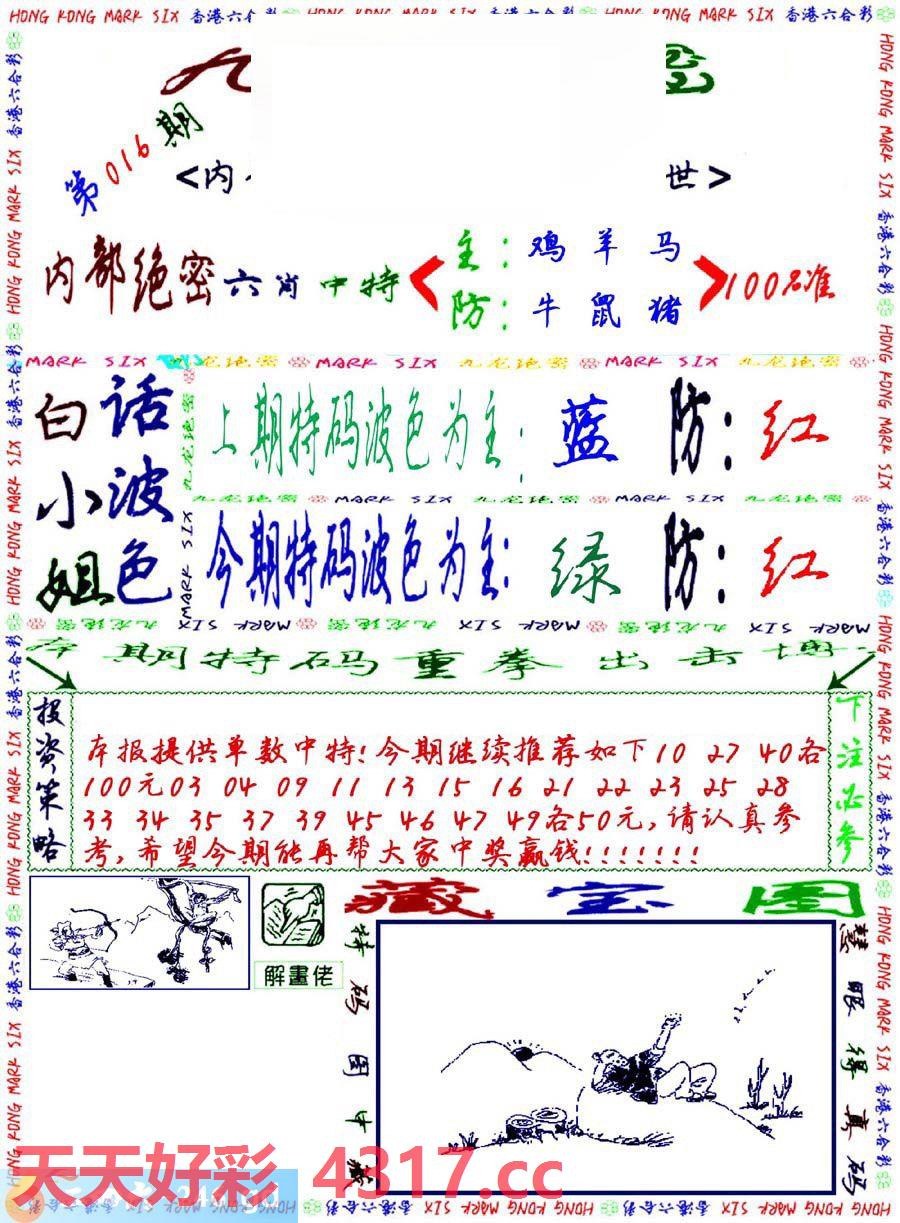 HONG KONG MARK SIX 香港六合彩 HONG KONG MARK SIX HONG KONG MARK SIX 香港六合彩
第016期
<内
世>
内部绝密六肖中特
主:鸡羊马
防:牛鼠猪
100%准
MARK SIX 九龙绝密 MARK SIX 九龙绝密 MARK SIX 九龙绝密
白话
小波
姐色
上期特码波色为主:蓝 防:红
九龙绝密 MARK SIX 九龙绝密 MARK SIX 九龙绝密
今期特码波色为主:绿 防:红
MARK SIX 九龙绝密 MARK SIX 九龙绝密 MARK SIX
期特码重拳出击
投资策略
本报提供单数中特!今期继续推荐如下10 27 40各
100元03 04 09 11 13 15 16 21 22 23 25 28
33 34 35 37 39 45 46 47 49各50元,请认真参
考,希望今期能再帮大家中奖赢钱!!!!!!!
下注必参
解畫佬
藏宝图
特码图中藏
慧眼得真码
天天好彩 4317.cc